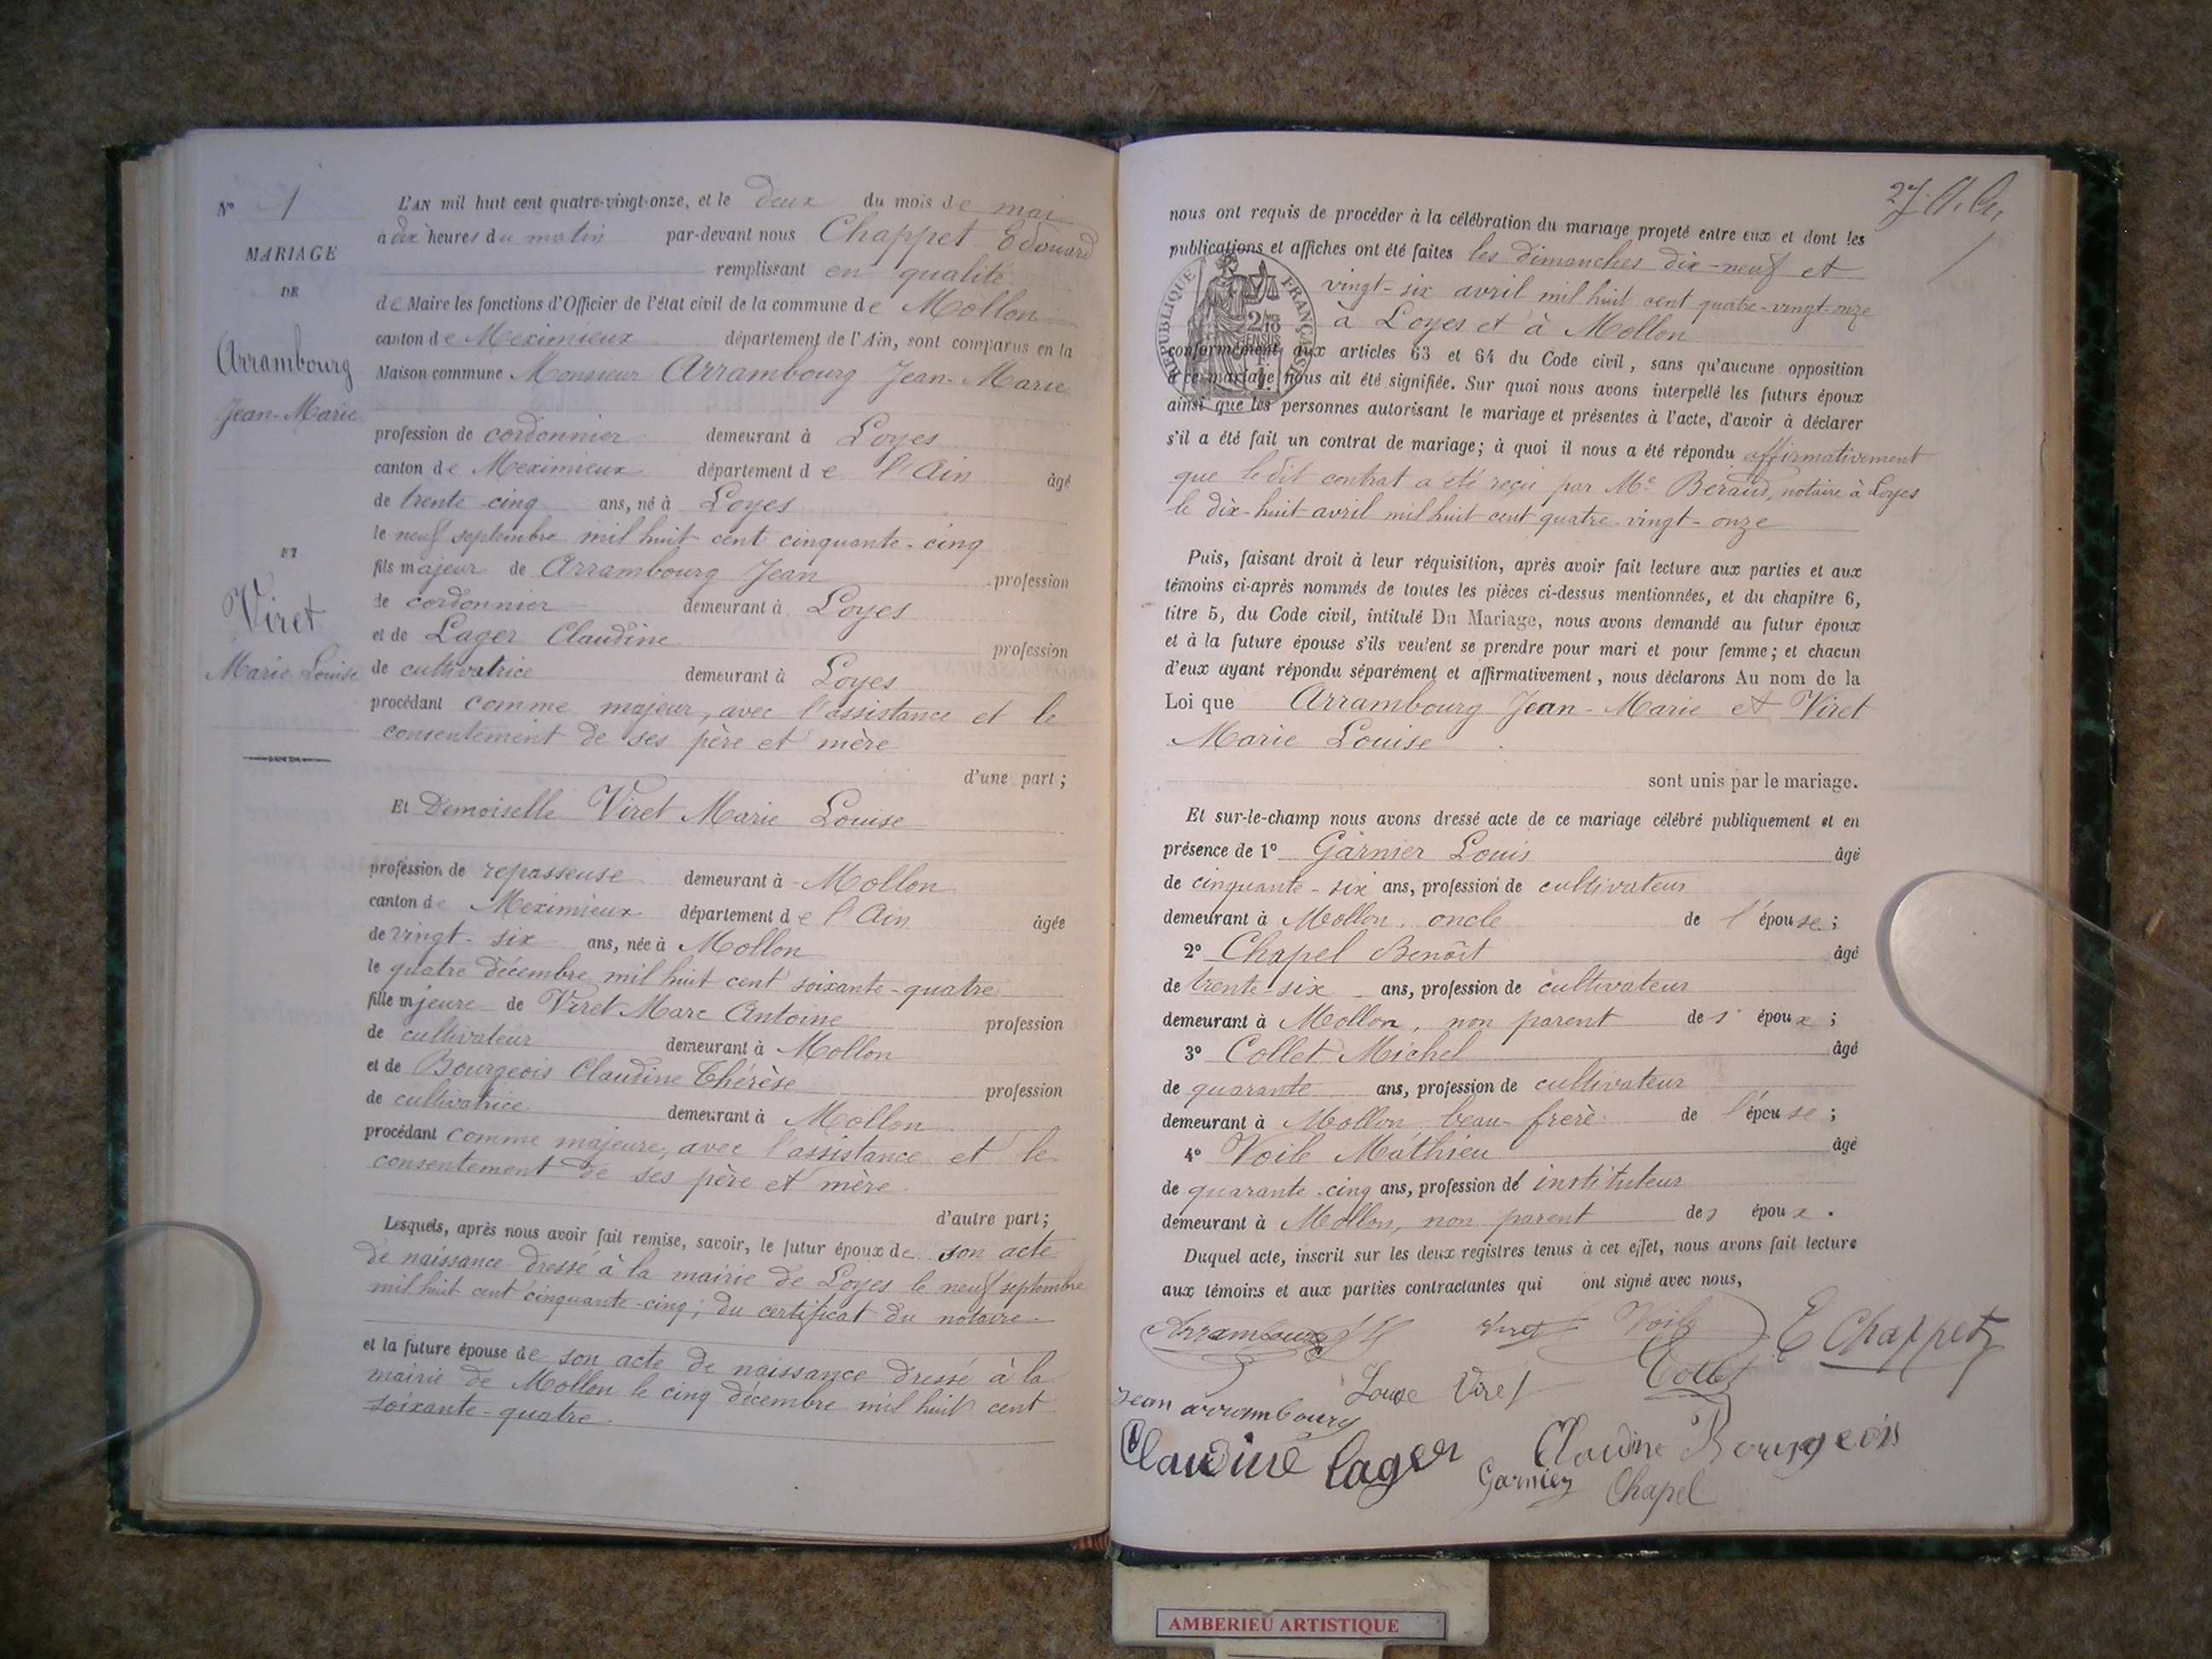 N° 1
MARIAGE
DE
Arrambourg
Jean-Marie
ET
Viret
Marie Louise
L'AN mil huit cent quatre-vingt-onze, et le deux du mois de mai
à dix heures du matin par-devant nous Chappet Edouard
remplissant en qualité
de Maire les fonctions d'Officier de l'état civil de la commune de Mollon
canton de Meximieux département de l'Ain, sont comparus en la
Maison commune Monsieur Arrambourg Jean-Marie
profession de cordonnier demeurant à Loyes
canton de Meximieux département de l'Ain âgé
de trente cinq ans, né à Loyes
le neuf septembre mil huit cent cinquante-cinq
fils majeur de Arrambourg Jean profession
de cordonnier demeurant à Loyes
et de Lager Claudine profession
de cultivatrice demeurant à Loyes
procédant comme majeur, avec l'assistance et le
consentement de ses père et mère
d'une part;
Et Demoiselle Viret Marie Louise
profession de repasseuse demeurant à Mollon
canton de Meximieux département de l'Ain âgée
de vingt-six ans, née à Mollon
le quatre décembre mil huit cent soixante-quatre
fille mjeure de Viret Marc Antoine profession
de cultivateur demeurant à Mollon
et de Bourgeois Claudine Thérèse profession
de cultivatrice demeurant à Mollon
procédant comme majeure, avec l'assistance et le
consentement de ses père et mère
d'autre part;
Lesquels, après nous avoir fait remise, savoir, le futur époux de son acte
de naissance dressé à la mairie de Loyes le neuf septembre
mil huit cent cinquante-cinq; du certificat du notaire
et la future épouse de son acte de naissance dressé à la
mairie de Mollon le cinq décembre mil huit cent
soixante-quatre.
27
nous ont requis de procéder à la célébration du mariage projeté entre eux et dont les
publications et affiches ont été faites les dimanches dix-neuf et
vingt-six avril mil huit cent quatre-vingt-onze
à Loyes et à Mollon
RÉPUBLIQUE FRANÇAISE
conformément aux articles 63 et 64 du Code civil, sans qu'aucune opposition
à ce mariage nous ait été signifiée. Sur quoi nous avons interpellé les futurs époux
ainsi que les personnes autorisant le mariage et présentes à l'acte, d'avoir à déclarer
s'il a été fait un contrat de mariage; à quoi il nous a été répondu affirmativement
que ledit contrat a été reçu par Me Béraud, notaire à Loyes
le dix-huit avril mil huit cent quatre-vingt-onze
Puis, faisant droit à leur réquisition, après avoir fait lecture aux parties et aux
témoins ci-après nommés de toutes les pièces ci-dessus mentionnées, et du chapitre 6,
titre 5, du Code civil, intitulé Du Mariage, nous avons demandé au futur époux
et à la future épouse s'ils veulent se prendre pour mari et pour femme; et chacun
d'eux ayant répondu séparément et affirmativement, nous déclarons Au nom de la
Loi que Arrambourg Jean-Marie et Viret
Marie Louise
sont unis par le mariage.
Et sur-le-champ nous avons dressé acte de ce mariage célébré publiquement et en
présence de 1° Garnier Louis âgé
de cinquante-six ans, profession de cultivateur
demeurant à Mollon, oncle de l'épouse;
2° Chapel Benoît âgé
de trente-six ans, profession de cultivateur
demeurant à Mollon, non parent des époux;
3° Collet Michel âgé
de quarante ans, profession de cultivateur
demeurant à Mollon beau-frère de l'épouse;
4° Voile Mathieu âgé
de quarante-cinq ans, profession de instituteur
demeurant à Mollon, non parent des époux.
Duquel acte, inscrit sur les deux registres tenus à cet effet, nous avons fait lecture
aux témoins et aux parties contractantes qui ont signé avec nous,
Arrambourg Viret Voile E Chappet
Jean arrambourg Louise Viret Collet
Claudine Lager Claudine Bourgeois
Garnier Chapel
AMBERIEU ARTISTIQUE